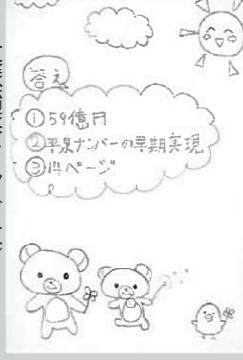 答え
①59億円
②平泉ナンバーの早期実現
③14ページ